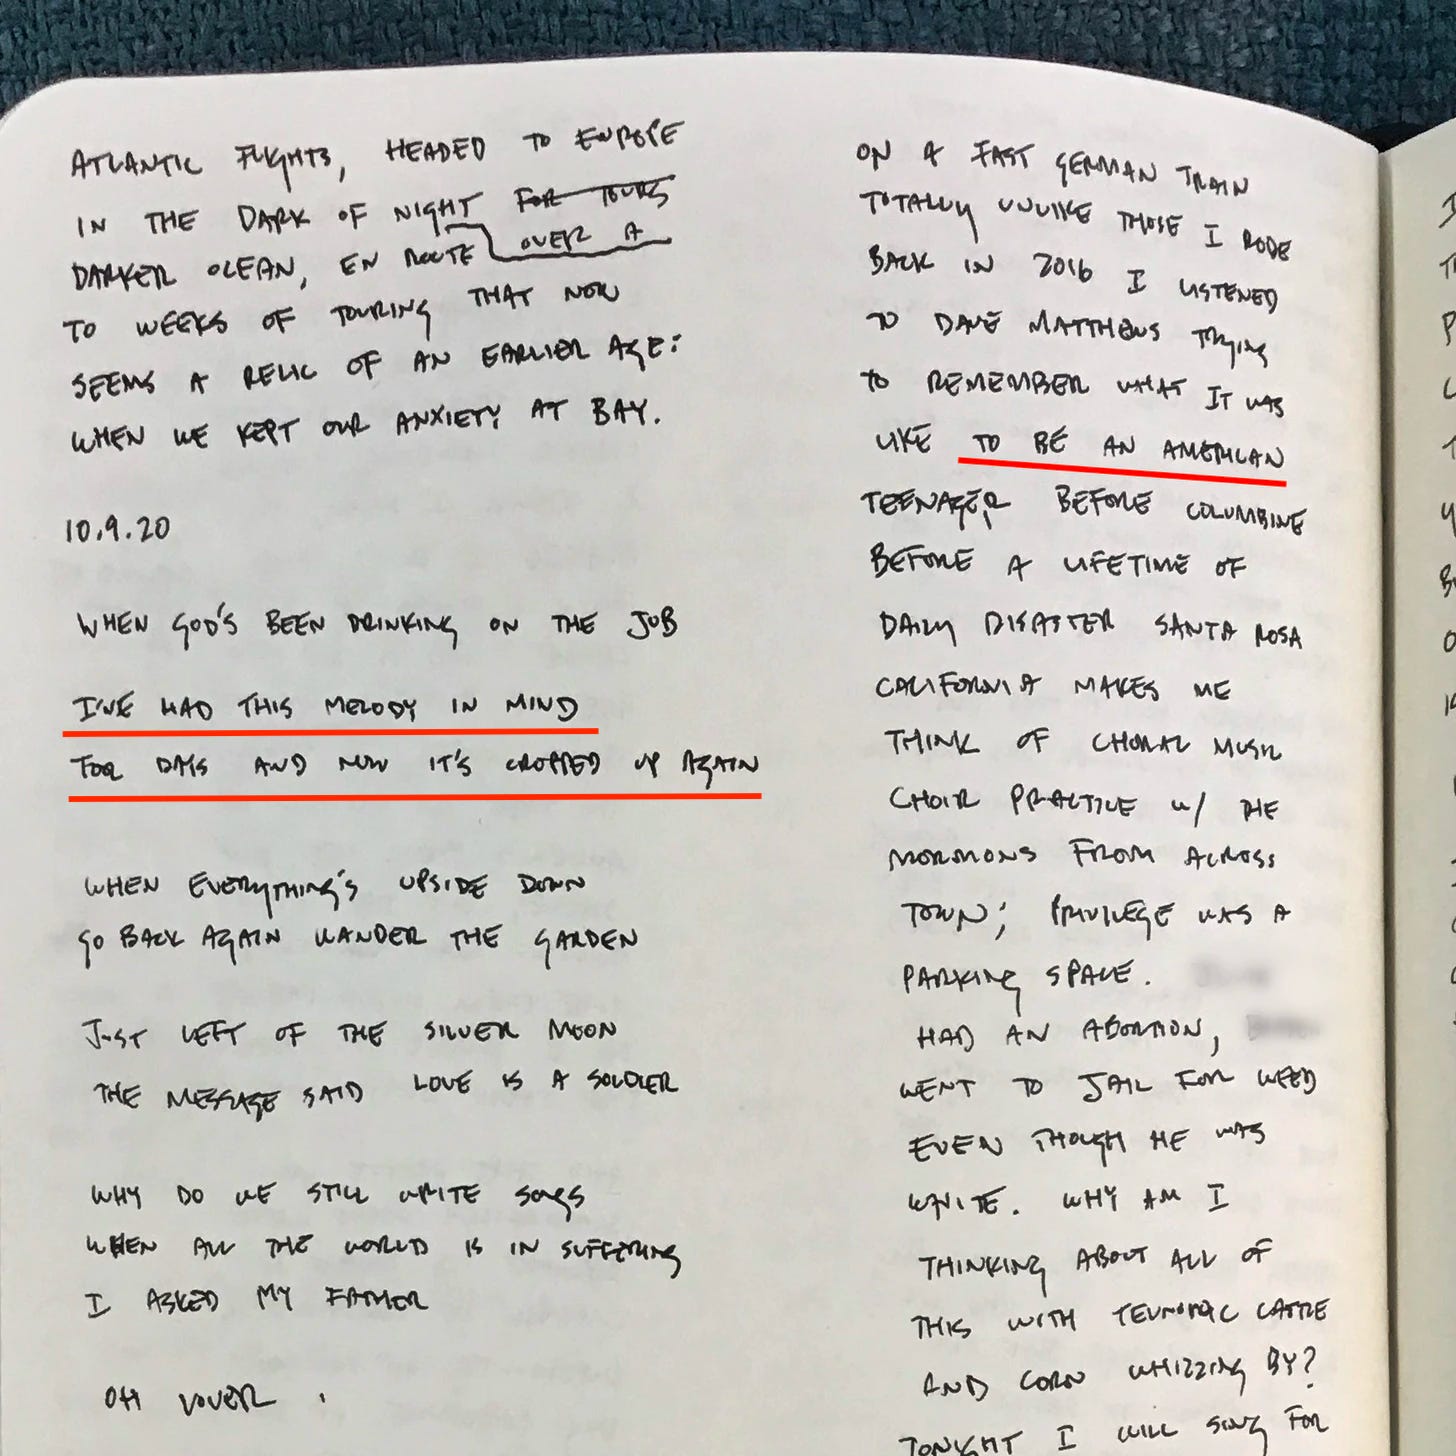 ATLANTIC FLIGHTS, HEADED TO EUROPE
IN THE DARK OF NIGHT FOR TOURS
OVER A
DARKER OCEAN, EN ROUTE
TO WEEKS OF TOURING THAT NOW
SEEMS A RELIC OF AN EARLIER AGE:
WHEN WE KEPT OUR ANXIETY AT BAY.
10.9.20
WHEN GOD'S BEEN DRINKING ON THE JOB
I'VE HAD THIS MELODY IN MIND
FOR DAYS AND NOW IT'S CROPPED UP AGAIN
WHEN EVERYTHING'S UPSIDE DOWN
GO BACK AGAIN WANDER THE GARDEN
JUST LEFT OF THE SILVER MOON
THE MESSAGE SAID LOVE IS A SOLDIER
WHY DO WE STILL WRITE SONGS
WHEN ALL THE WORLD IS IN SUFFERING
I ASKED MY FATHER
OH LOVER
ON A FAST GERMAN TRAIN
TOTALLY UNLIKE THOSE I RODE
BACK IN 2016 I LISTENED
TO DAVE MATTHEWS TRYING
TO REMEMBER WHAT IT WAS
LIKE TO BE AN AMERICAN
TEENAGER BEFORE COLUMBINE
BEFORE A LIFETIME OF
DAILY DISASTER SANTA ROSA
CALIFORNIA MAKES ME
THINK OF CHORAL MUSIC
CHOIR PRACTICE W/ THE
MORMONS FROM ACROSS
TOWN; PRIVILEGE WAS A
PARKING SPACE.
HAD AN ABORTION,
WENT TO JAIL FOR WEED
EVEN THOUGH HE WAS
WHITE. WHY AM I
THINKING ABOUT ALL OF
THIS WITH CATTLE
AND CORN WHIZZING BY?
TONIGHT I WILL SING FOR